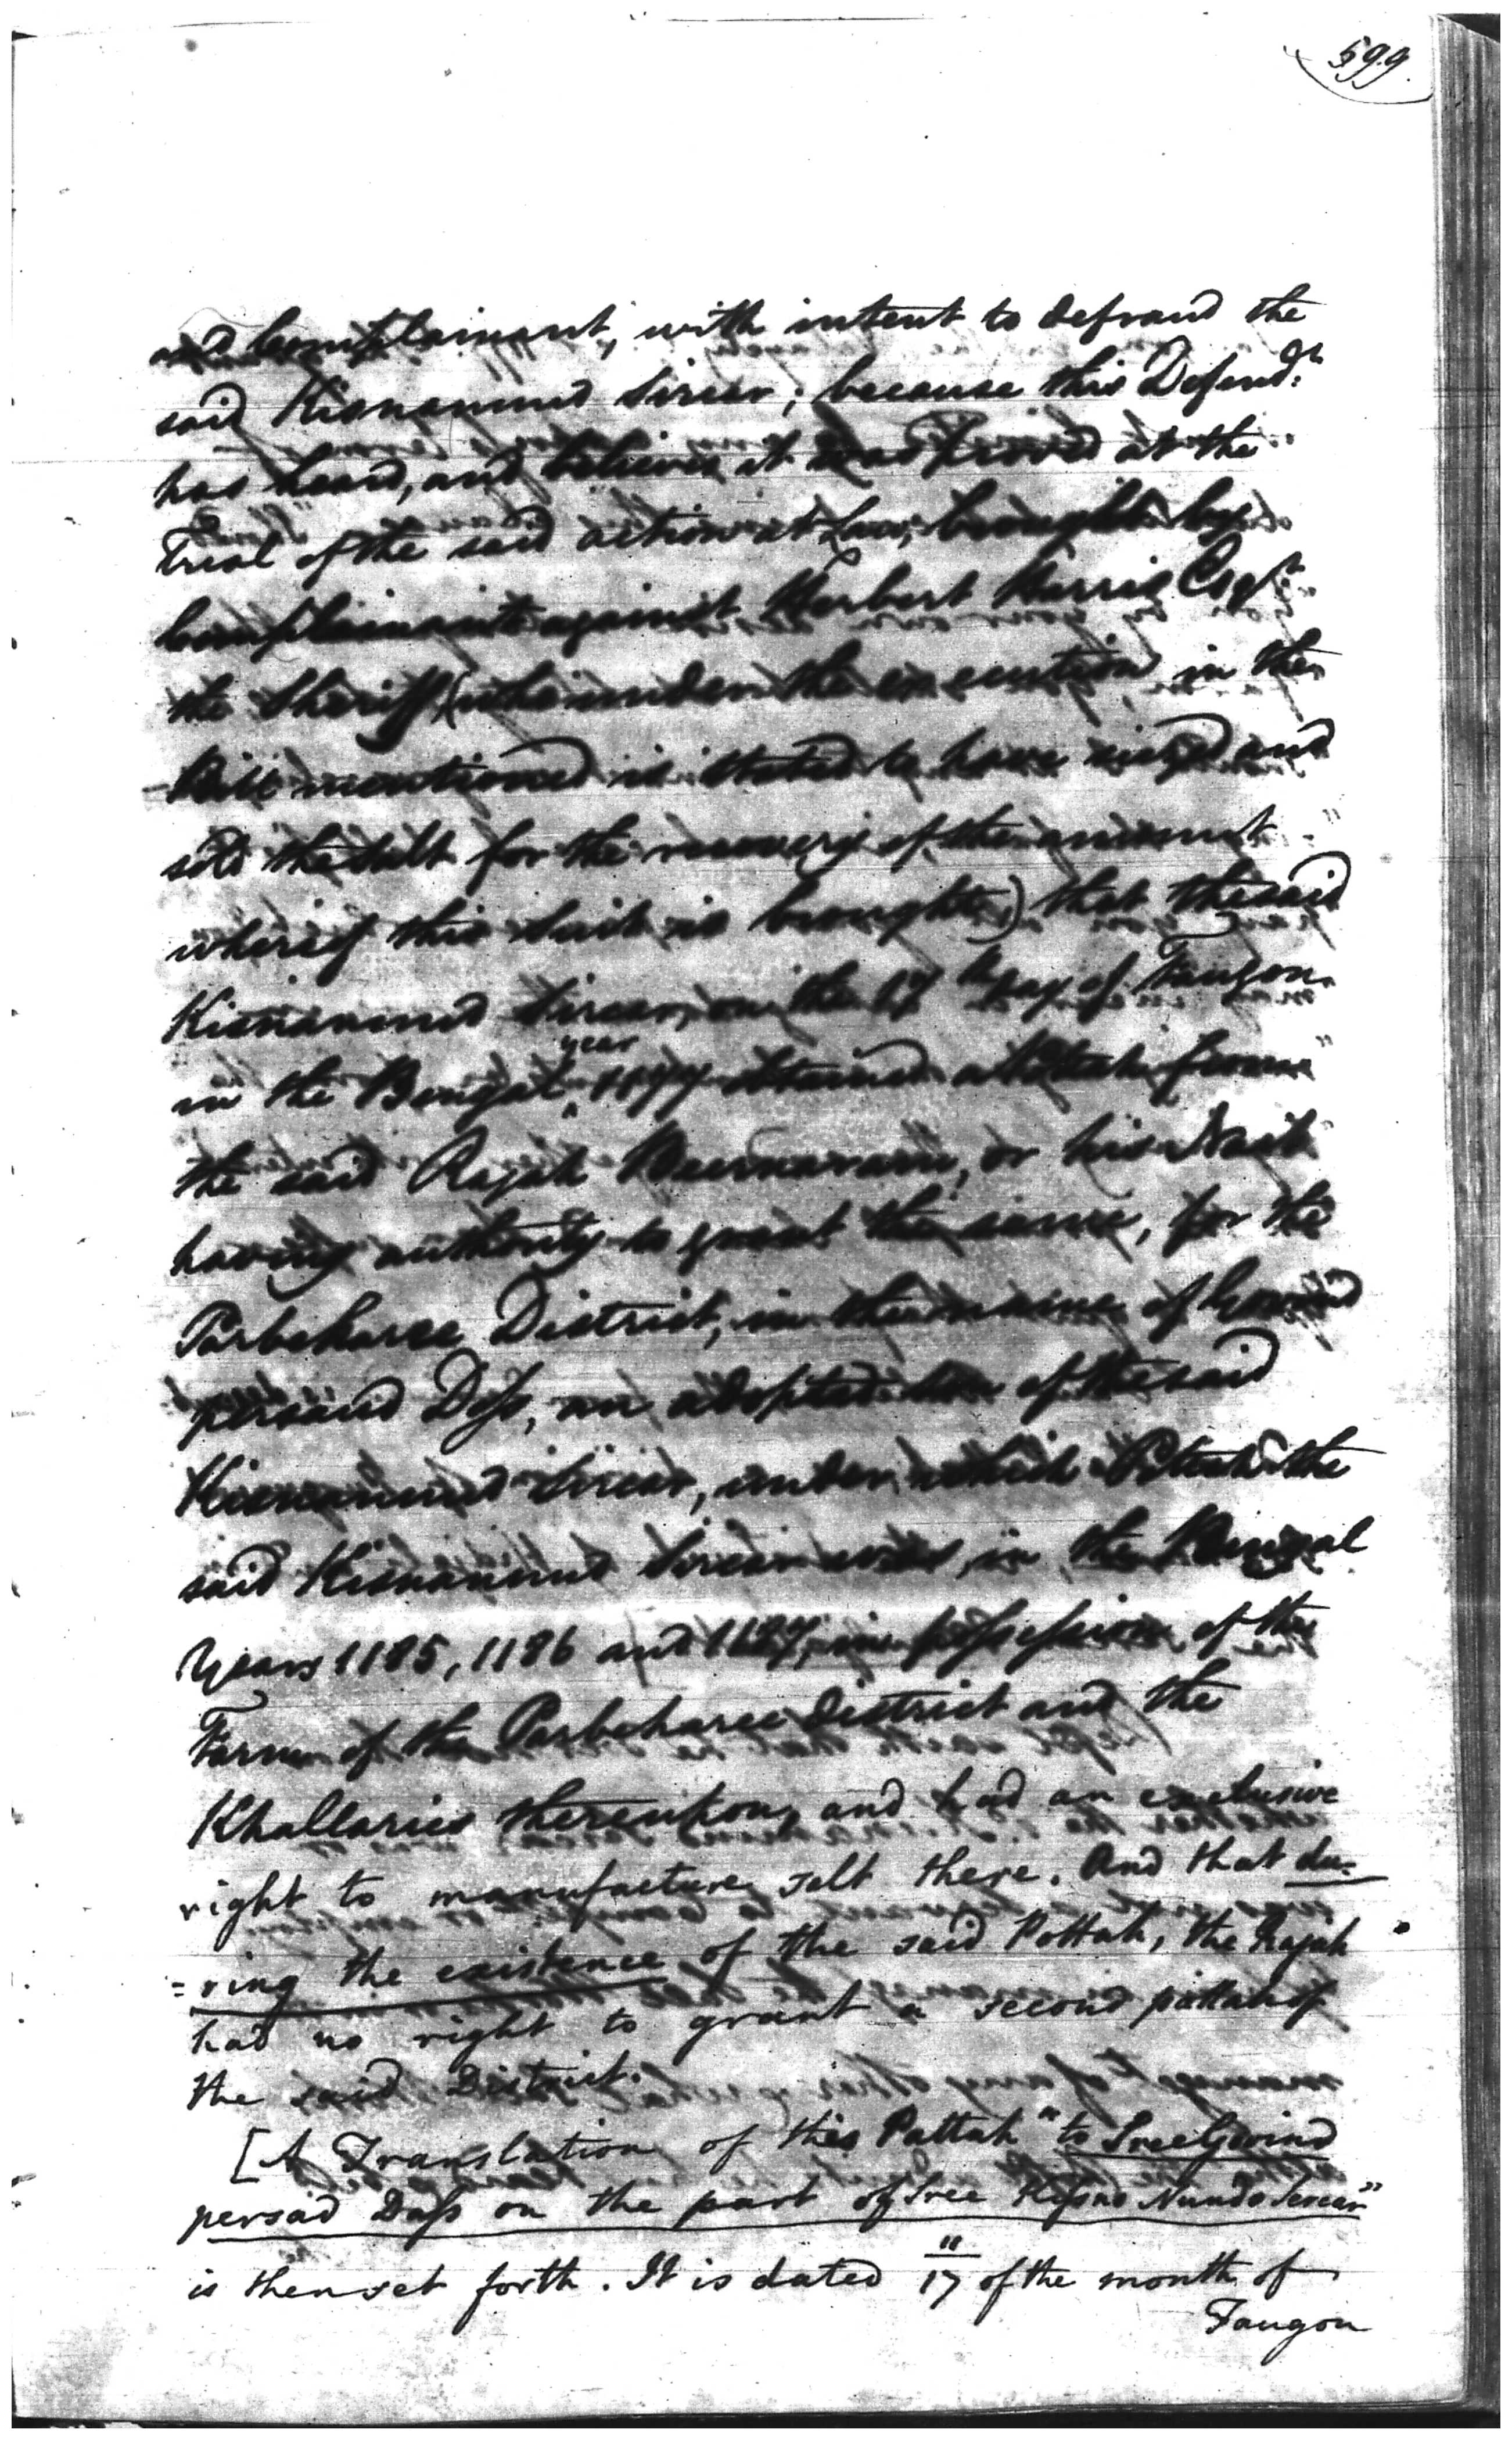 599.
and Complainant, with intent to defraud the
said Kisnanund Sircar; because this Defend:t
has heard, and believes it was proved at the
Trial of the said action at Law, brought by
Complainant against Herbert Harris Esqr
the Sheriff (who under the execution, in the
Bill mentioned is stated to have seized and
sold the Salt for the recovery of the amount
whereof this Suit is brought,) that the said
Kisnanund Sircar, on the 17th day of Faugon
in the Bengal year 1177 obtained a Pottah from
the said Rajah, or his Naib
having authority to grant the same, for the
Parbeharee District, in the name of Govind
persaud Doss, an adopted Son of the said
Kisnanund Sircar, under which Pottah the
said Kisnanund Sircar was, in the Bengal
Years 1185, 1186 and 1187, in possession of the
Farm of the Parbeharee District and the
Khallaries thereupon, and had an exclusive
right to manufacture salt there. And that du=
=ring the existence of the said Pottah, the Rajah
had no right to grant a second pottah of
the said District.
[A Translation of this Pattah "to Sree Govind
persad Dass on the part of Sree Kisno Nundo Sercar"
is then set forth. It is dated 11/17 of the month of
Faugon